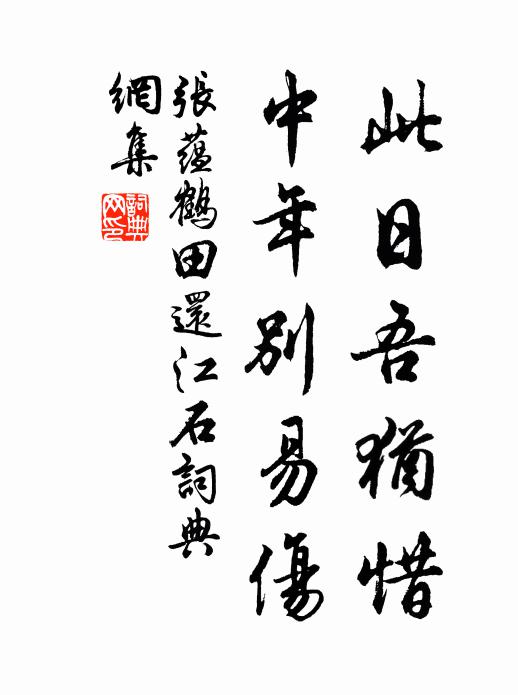 此日吾猶惜
中年別易傷
張蘊鶴田還江石詞典
網集
詞典
网印